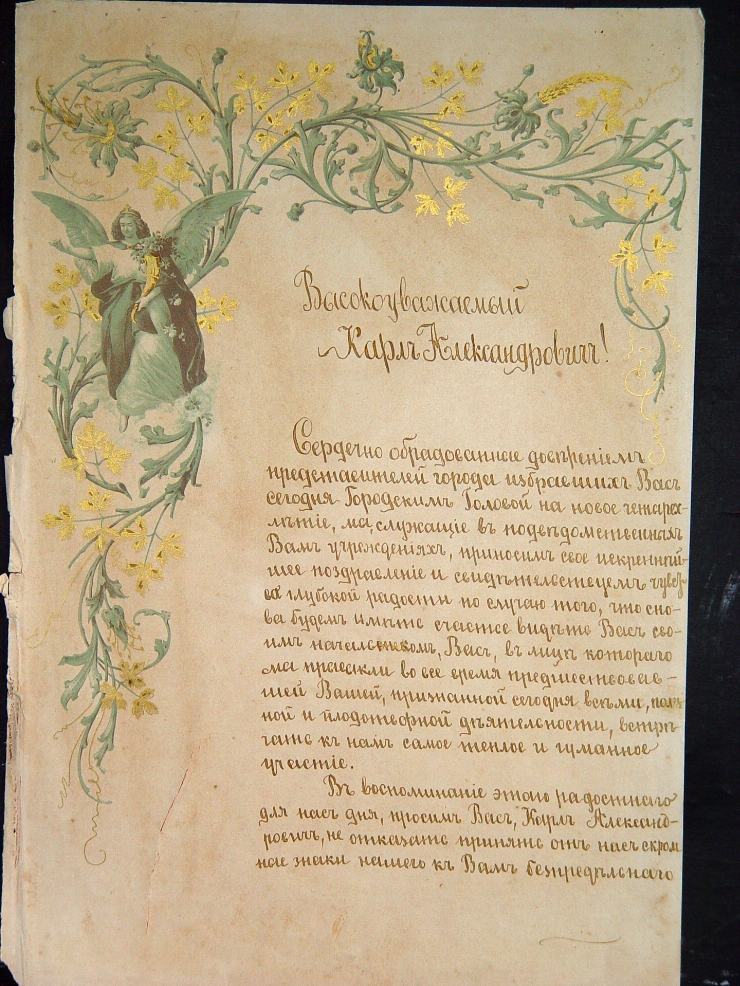 Высокоуважаемый
Карлъ Александровичъ!
Сердечно обрадованные довѣріемъ
представителей города избравшихъ Васъ
сегодня Городскимъ Головой на новое четырех-
лѣтіе, мы, служащіе въ подвѣдомственныхъ
Вамъ учрежденіяхъ, приносимъ свое искреннѣй-
шее поздравленіе и свидѣтельствуемъ чувс-
ва глубокой радости по случаю того, что сно-
ва будемъ имѣть счастье видѣть Васъ сво-
имъ начальникомъ, Васъ, въ лицѣ котораго
мы привыкли во все время предшествовав-
шей Вашей, признанной сегодня всѣми, полез-
ной и плодотворной дѣятельности, встрѣ-
чать къ намъ самое теплое и гуманное
участіе.
Въ воспоминаніе этаго радостнаго
для насъ дня, просимъ Васъ, Карлъ Александ-
ровичъ, не отказать принять отъ насъ скром
ные знаки нашего къ Вамъ безпредѣльнаго